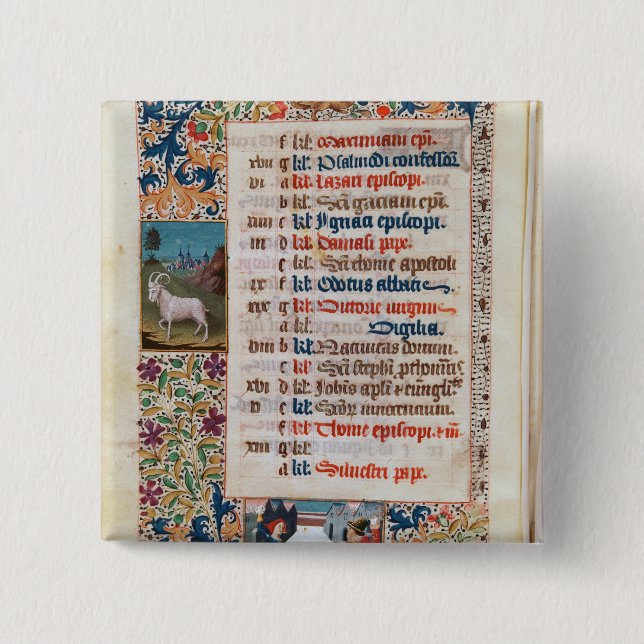 f kl. Maximiani epi.
xviii g kl. Psalmodi confessor
vi a kl. Lazari episcopi.
b kl. Sci graciani epi.
xiiii c kl. Ignaci episcopi.
iii d kl. Damasi pape.
e kl. Sci thome apostoli
f kl. Abbatis
xix g kl. Victorie virginis
a Vigilia.
viii b kl. Nativitas domini.
c kl. Sci stephani
xvi d kl. Johis apli
v e kl. Scor innocentium.
f kl. Thome episcopi
xiii g kl.
a kl. Silvestri pape.